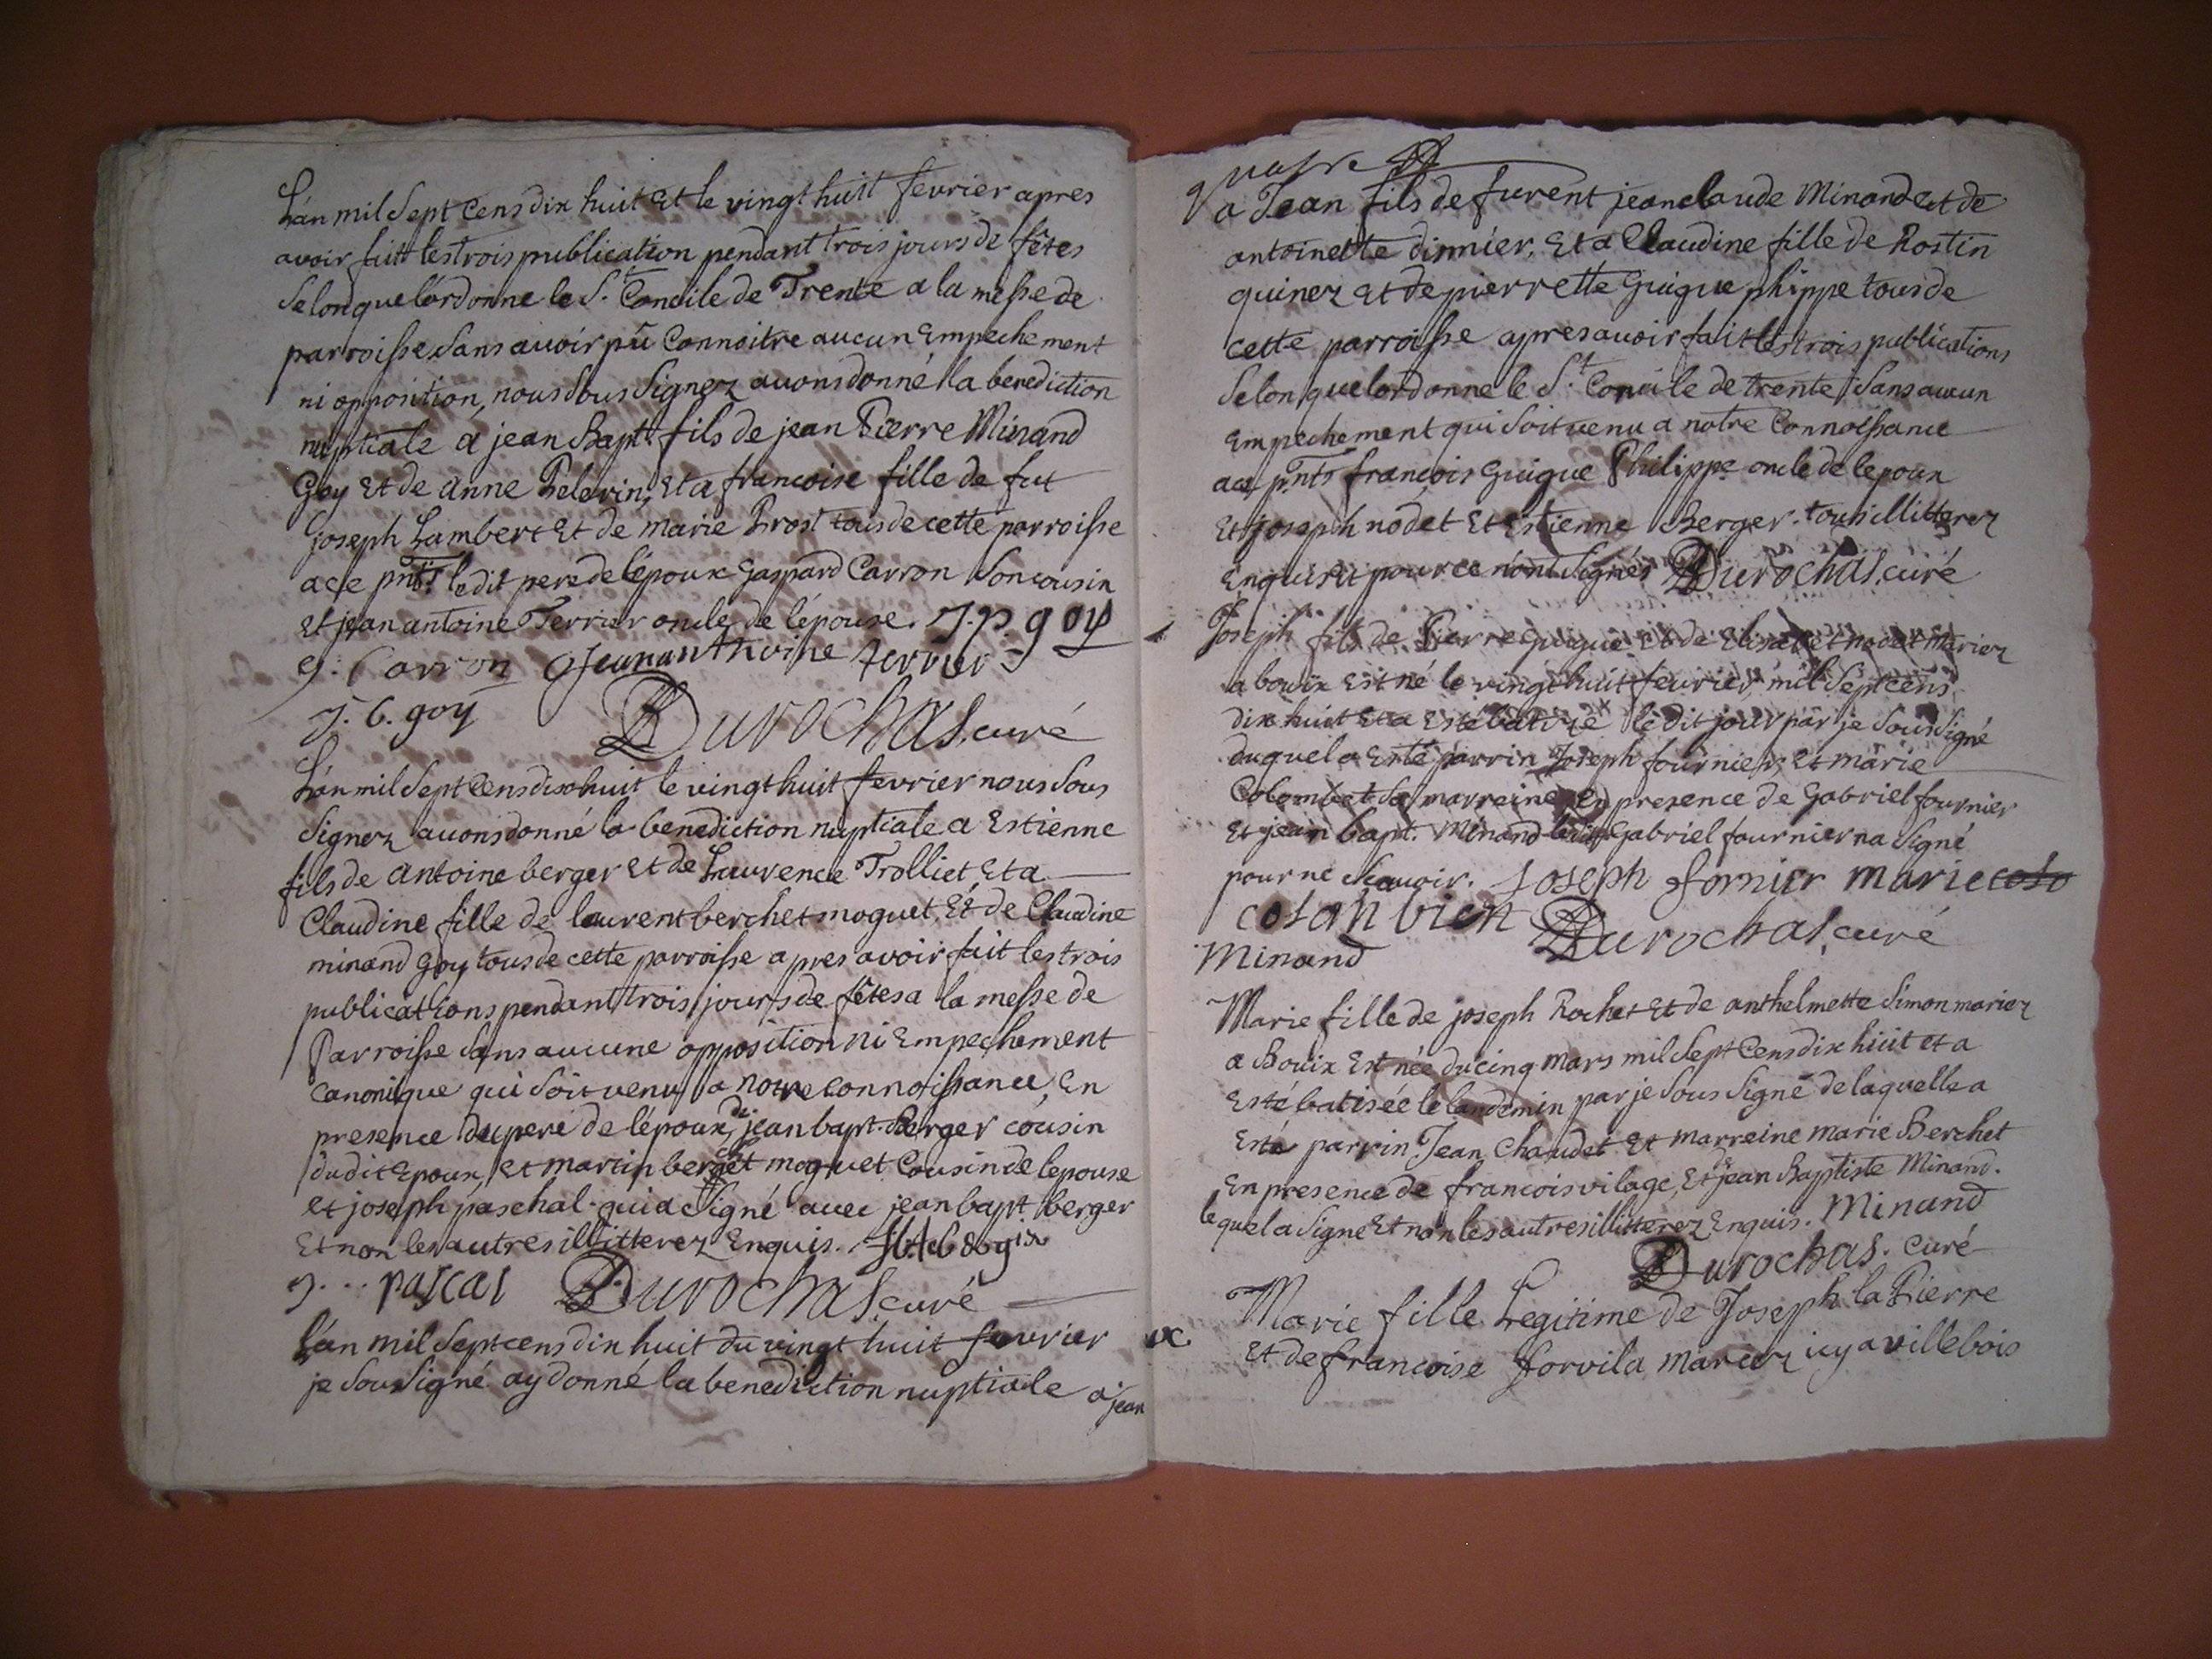 L'an mil Sept Cens dix huit Et le vingt huitt fevrier apres
avoir faitt les trois publication pendant trois jours de fêtes
Selon que l'ordonne le S.t Concile de Trente a la messe de
parroisse Sans avoir pû Connoitre aucun Empechement
ni opposition, nous Sous Signez avons donné la benediction
nuptiale a jean Bapt. fils de jean Pierre Minand
Goy Et de Anne Pelerin, Et a francoise fille de fut
joseph Lambert Et de Marie Prost tous de cette parroisse
a ce pnts le dit pere de l'époux Gaspard Carron Son cousin
Et jean antoine Terrier oncle de l'épouse. J. P. goy
g. Carron Jeananthoine terrier
J. b. goy Durochas, curé
L'an mil Sept Cens dix huit le vingt huit fevrier nous Sous
Signez avons donné la benediction nuptiale a Estienne
fils de Antoine berger Et de Laurence Trolliet Et a
Claudine fille de laurent berchet moquet, Et de Claudine
minand Goy tous de cette parroisse apres avoir fait les trois
publications pendant trois jours de fêtes a la messe de
Parroisse Sans aucune opposition ni Empechement
Canonique qui Soit venu a notre connoissance, En
presence du pere de l'époux, de jean bapt. Berger cousin
du dit Epoux, Et martin berchet moquet Cousin de lepouse
et joseph paschal qui a Signé avec jean bapt berger
Et non les autres illitterez Enquis.
J... pascal Durochas, curé
L'an mil Sept cens dix huit du vingt huit fevrier
je Sous Signé ay donné la benediction nuptiale a jean
quatre
a Jean fils de furent jean claude Minand et de
antoinette dimier, Et a Claudine fille de Rostin
quinez Et de pierrette Guigue phippe tous de
cette parroisse apres avoir fait les trois publications
Selon que lordonne le S.t Concile de trente Sans aucun
Empechement qui Soit venu a notre Connoissance
a ce pnts françois Guigue Philippe oncle de lepoux
Et joseph nodet Et Estienne Berger. tous illitterez
Enquis Et pour ce n'ont Signés Durochas, curé
Joseph fils de Pierre guigue Et de Elisabet nodet mariez
a bouix Est né le vingt huit fevrier mil Sept cens
dix huit Et a Esté batizé le dit jour par je Sous Signé
duquel a Esté parrin Joseph fournier, Et marie
Colombet Sa marreine, En presence de Gabriel fournier
Et jean bapt. Minand ledit Gabriel fournier na Signé
pour ne Scavoir. Joseph fornier marie colo
colan bien Durochas, curé
Minand
Marie fille de joseph Rochet Et de anthelmette Simon mariez
a Bouix Est née du cinq mars mil Sept Cens dix huit et a
Esté batisée le landemin par je Sous Signé de laquelle a
Esté parrin Jean Chaudet Et marreine marie Berchet
En presence de francois vilage, Et de jean Baptiste Minand.
lequel a Signé Et non les autres illitterez Enquis. Minand
Durochas. Curé
Marie fille Legitime de Joseph la Pierre
Et de francoise forvila mariez icy a villebois